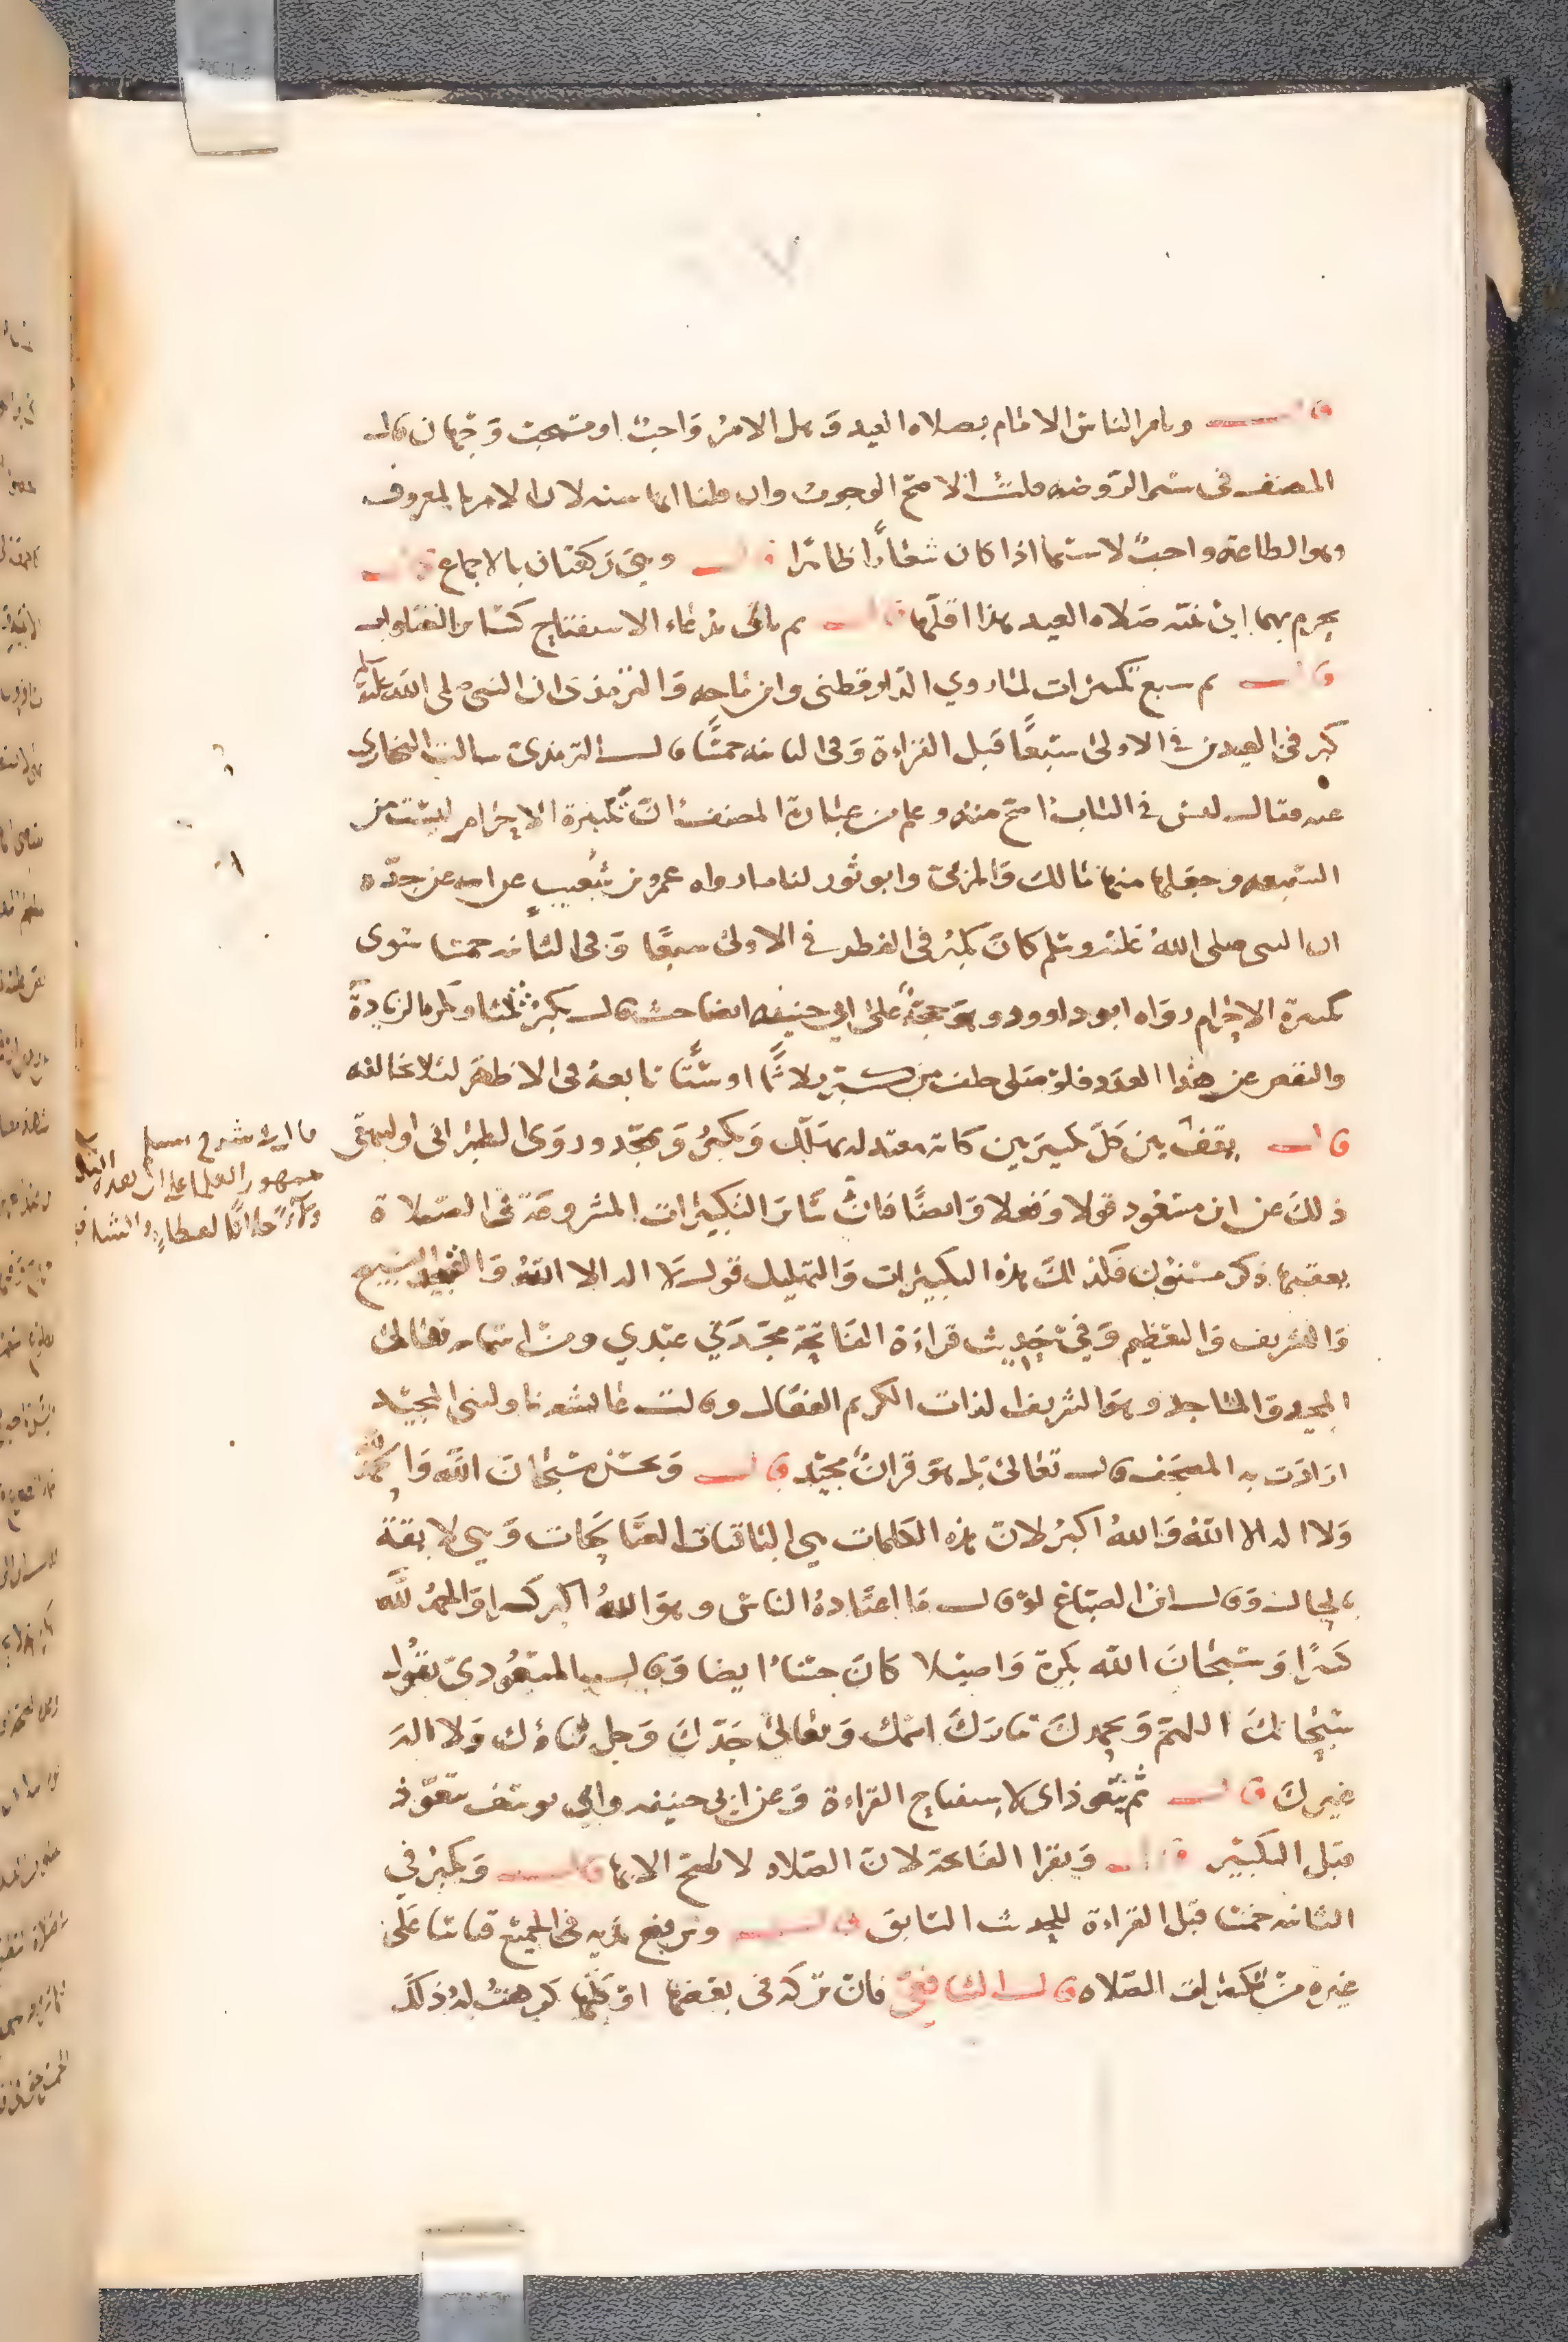 قال ويامر الناس الامام بصلاه العيد وهل الامر واجب او مستحب وجهان قال
المصنف في الروضه قلت الاصح الوجوب وان قلنا انها سنه لان الامر بالمعروف
وهو الطاعة واجب لا سيما اذا كان شعارا ظاهرا قال وهي ركعتان بالاجماع قال
يحرم بهما اي بنية صلاه العيد هذا اقلها قال ثم ياتي بدعاء الاستفتاح كسائر الصلوات
قال ثم سبع تكبيرات لما روي الدارقطني وابن ماجه والترمذي ان النبي صلى الله عليه
كبر في العيدين في الاولى سبعا قبل القراءة وفي الثانيه خمسا قال الترمذي سالت البخاري
عنه فقال ليس في الباب اصح منه وعلم من عبارة المصنف ان تكبيرة الاحرام ليست من
السبعه وجعلها منها مالك والمزني وابو ثور لنا ما رواه عمرو بن شعيب عن ابيه عن جده
ان النبي صلى الله عليه وسلم كان يكبر في الفطر في الاولى سبعا وفي الثانيه خمسا سوى
تكبيرة الاحرام رواه ابو داوود وهو حجة على ابي حنيفه ايضا حيث قال يكبر ثلثا وتكره الزيادة
والنقص عن هذا العدد فلو صلى خلف من يكبر ثلاثا او ستا تابعه في الاظهر لئلا يخالفه
قال يقف بين كل تكبيرتين كايه معتدله يهلل ويكبر ويمجد وروى الطبراني والبيهقي
ذلك عن ابن مسعود قولا وفعلا وايضا فان سائر التكبيرات المشروعة في الصلاة
يعقبها ذكر مسنون فكذلك هذه التكبيرات والتهليل قول لا اله الا الله والتمجيد
والتشريف والتعظيم وفي حديث قراءة الفاتحة مجدني عبدي ومن اسمائه تعالى
المجيد والماجد وهو الشريف الذات الكريم الفعال وقالت عائشه ناوليني المجيد
ارادت به المصحف قال تعالى بل هو قران مجيد قال ويحسن سبحان الله والحمد لله
ولا اله الا الله والله اكبر لان هذه الكلمات هي الباقيات الصالحات وهي لايقة
بالحال وقال ابن الصباغ لو قال ما اعتاده الناس وهو الله اكبر كبيرا والحمد لله
كثيرا وسبحان الله بكرة واصيلا كان حسنا ايضا وقال المسعودي يقول
سبحانك اللهم وبحمدك تبارك اسمك وتعالى جدك وجل ثناؤك ولا اله
غيرك قال ثم يتعوذ اي لاستفتاح القراءة وعن ابي حنيفه وابي يوسف يتعوذ
قبل التكبير قال ويقرا الفاتحة لان الصلاه لا تصح الا بها قال ويكبر في
الثانيه خمسا قبل القراءة للحديث السابق قال ويرفع يديه في الجميع قياسا على
غيره من تكبيرات الصلاه قال الشافعي فان تركه في بعضها او كلها كرهت له ذلك
قال في شرح مسلم
جمهور العلما على ان هذه